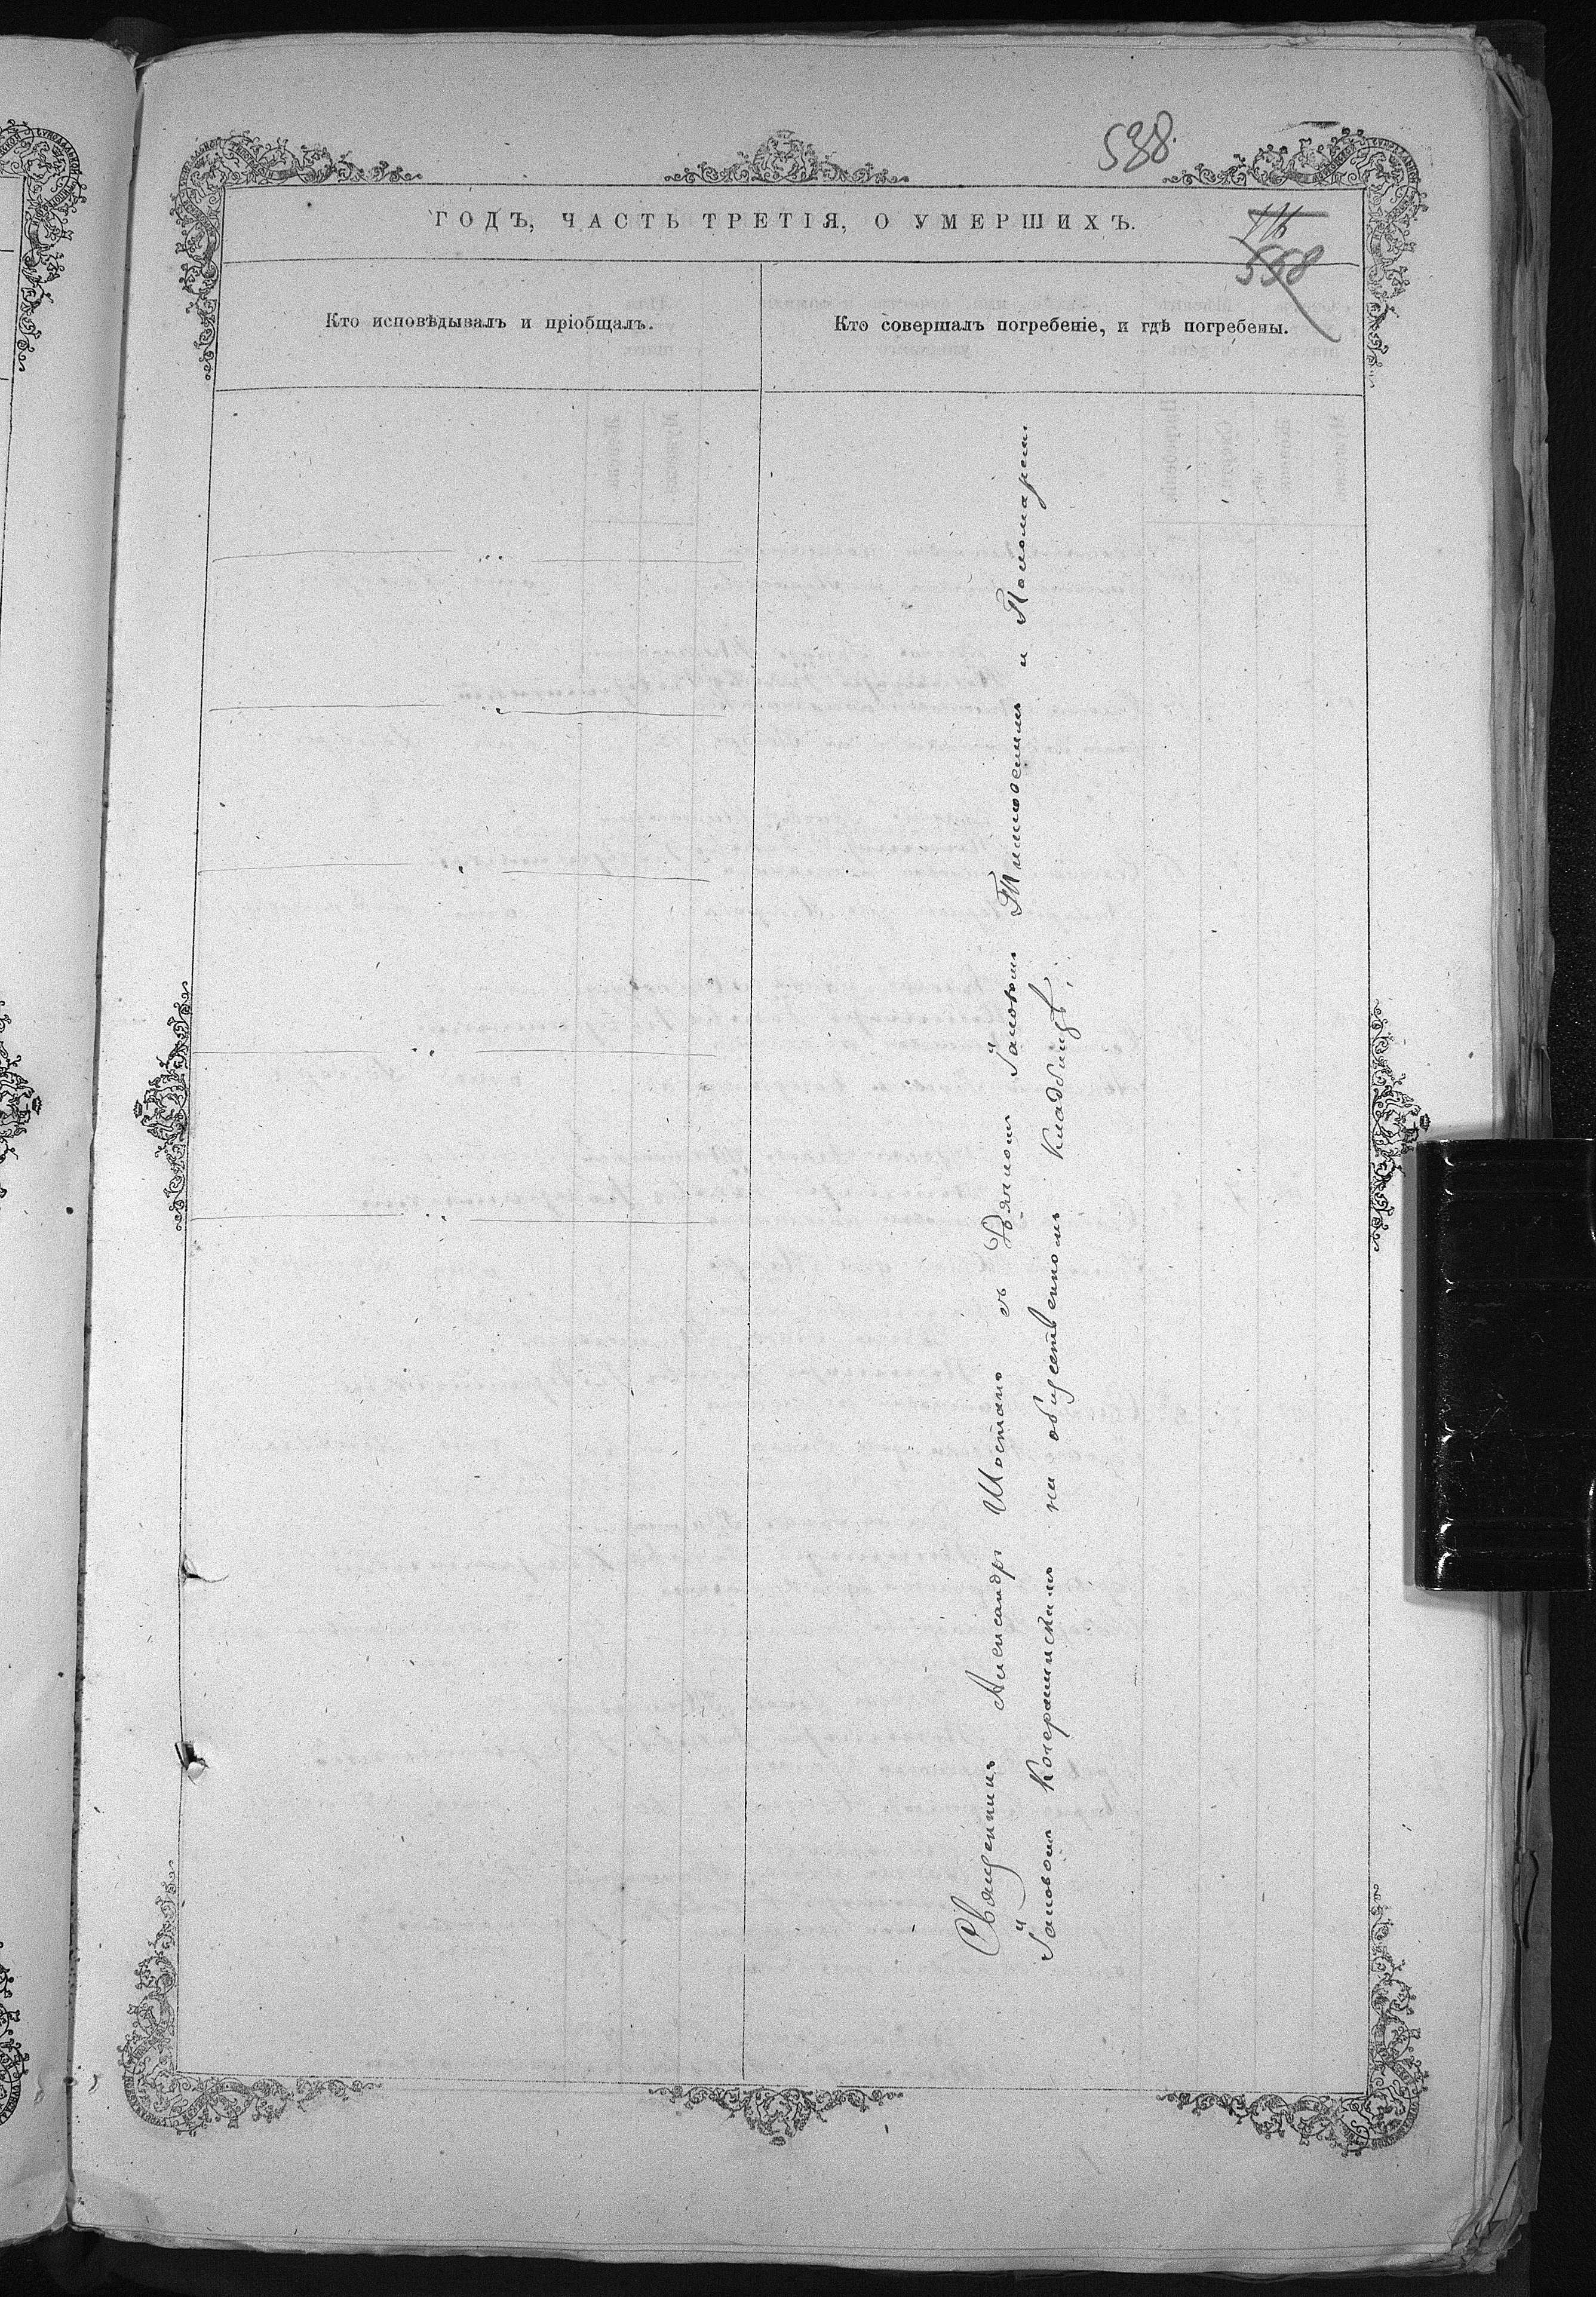 538.
ГОДЪ, ЧАСТЬ ТРЕТІЯ, О УМЕРШИХЪ.
558
Кто исповѣдывалъ и пріобщалъ.
Кто совершалъ погребеніе, и гдѣ погребены.
Священникъ Александръ Шостакъ съ Дьякомъ Іаковомъ Тимофеимъ и Пономаремъ
Іаковомъ на общественномъ кладбищѣ.